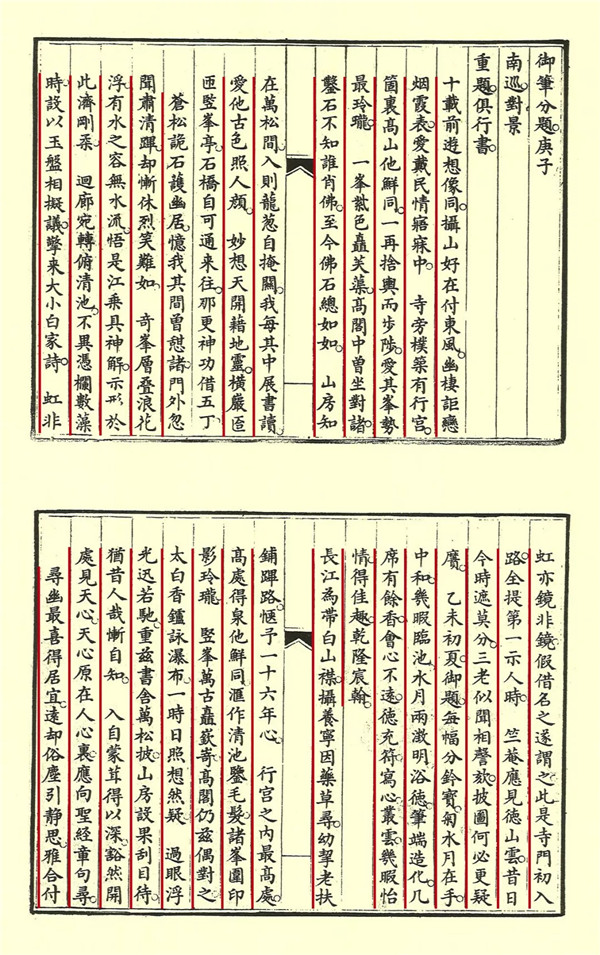 御筆分題庚子
南巡對景
重題俱行書
十載前遊想像同攝山好在付東風幽棲詎戀
烟霞表愛戴民情寤寐中　寺旁樸築有行宮
箇裏高山他鮮同一再捨輿而步陟愛其峯勢
最玲瓏　一峯黛色矗芙蕖高閣中曾坐對諸
鑿石不知誰肖佛至今佛石總如如　山房知
在萬松間入則龍葱自掩關我每其中展書讀
愛他古色照人顔　妙想天開藉地靈橫嚴匼
匝竪峯亭石橋自可通來往那更神功借五丁
蒼松詭石護幽居憶我其間曾憇諸門外忽
聞肅清蹕却慚休烈笑難如　奇峯層叠浪花
浮有水之容無水流悟是江乘具神解示形於
此濟剛柔　迴廊宛轉俯清池不異憑欄數藻
時設以玉盤相擬議擎来大小白家詩　虹非
虹亦鏡非鏡假借名之遂謂之此是寺門初入
路全提第一示人時　竺菴應見徳山雲昔日
今時遮莫分三老似聞相謦欬披圖何必更疑
贗　乙未初夏御題每幅分鈐寶匊水月在手
中和幾暇臨池水月兩澂明浴徳筆端造化几
席有餘香會心不遠徳充符寫心叢雲幾暇怡
情得佳趣乾隆宸翰
長江為帶白山襟攝養寧因藥草尋幼挈老扶
鋪蹕路愜予一十六年心　行宮之内最高處
高處得泉他鮮同滙作清池鑒毛髮諸峯圍印
影玲瓏　竪峯萬古矗嶔崎高閣仍兹偶對之
太白香鑪詠瀑布一時日照想然疑　過眼浮
光迅若馳重兹書舎萬松披山房設果刮目待
猶昔人哉慚自知　入自蒙茸得以深豁然開
處見天心天心原在人心裏應向聖經章句尋
尋幽最喜得居宜遠却俗塵引静思雅合付